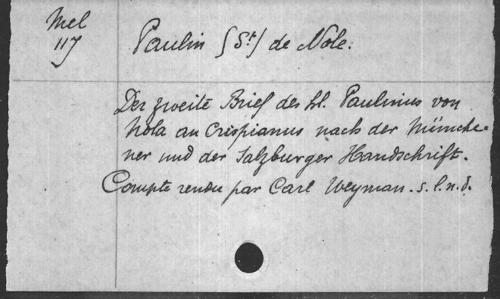 Mel
117
Paulin (St) de Nole.
Der zweite Brief des hl. Paulinus von
Nola an Crispianus nach der Münche-
ner und der Salzburger Handschrift.
Compte rendu par Carl Weyman. s.l.n.d.